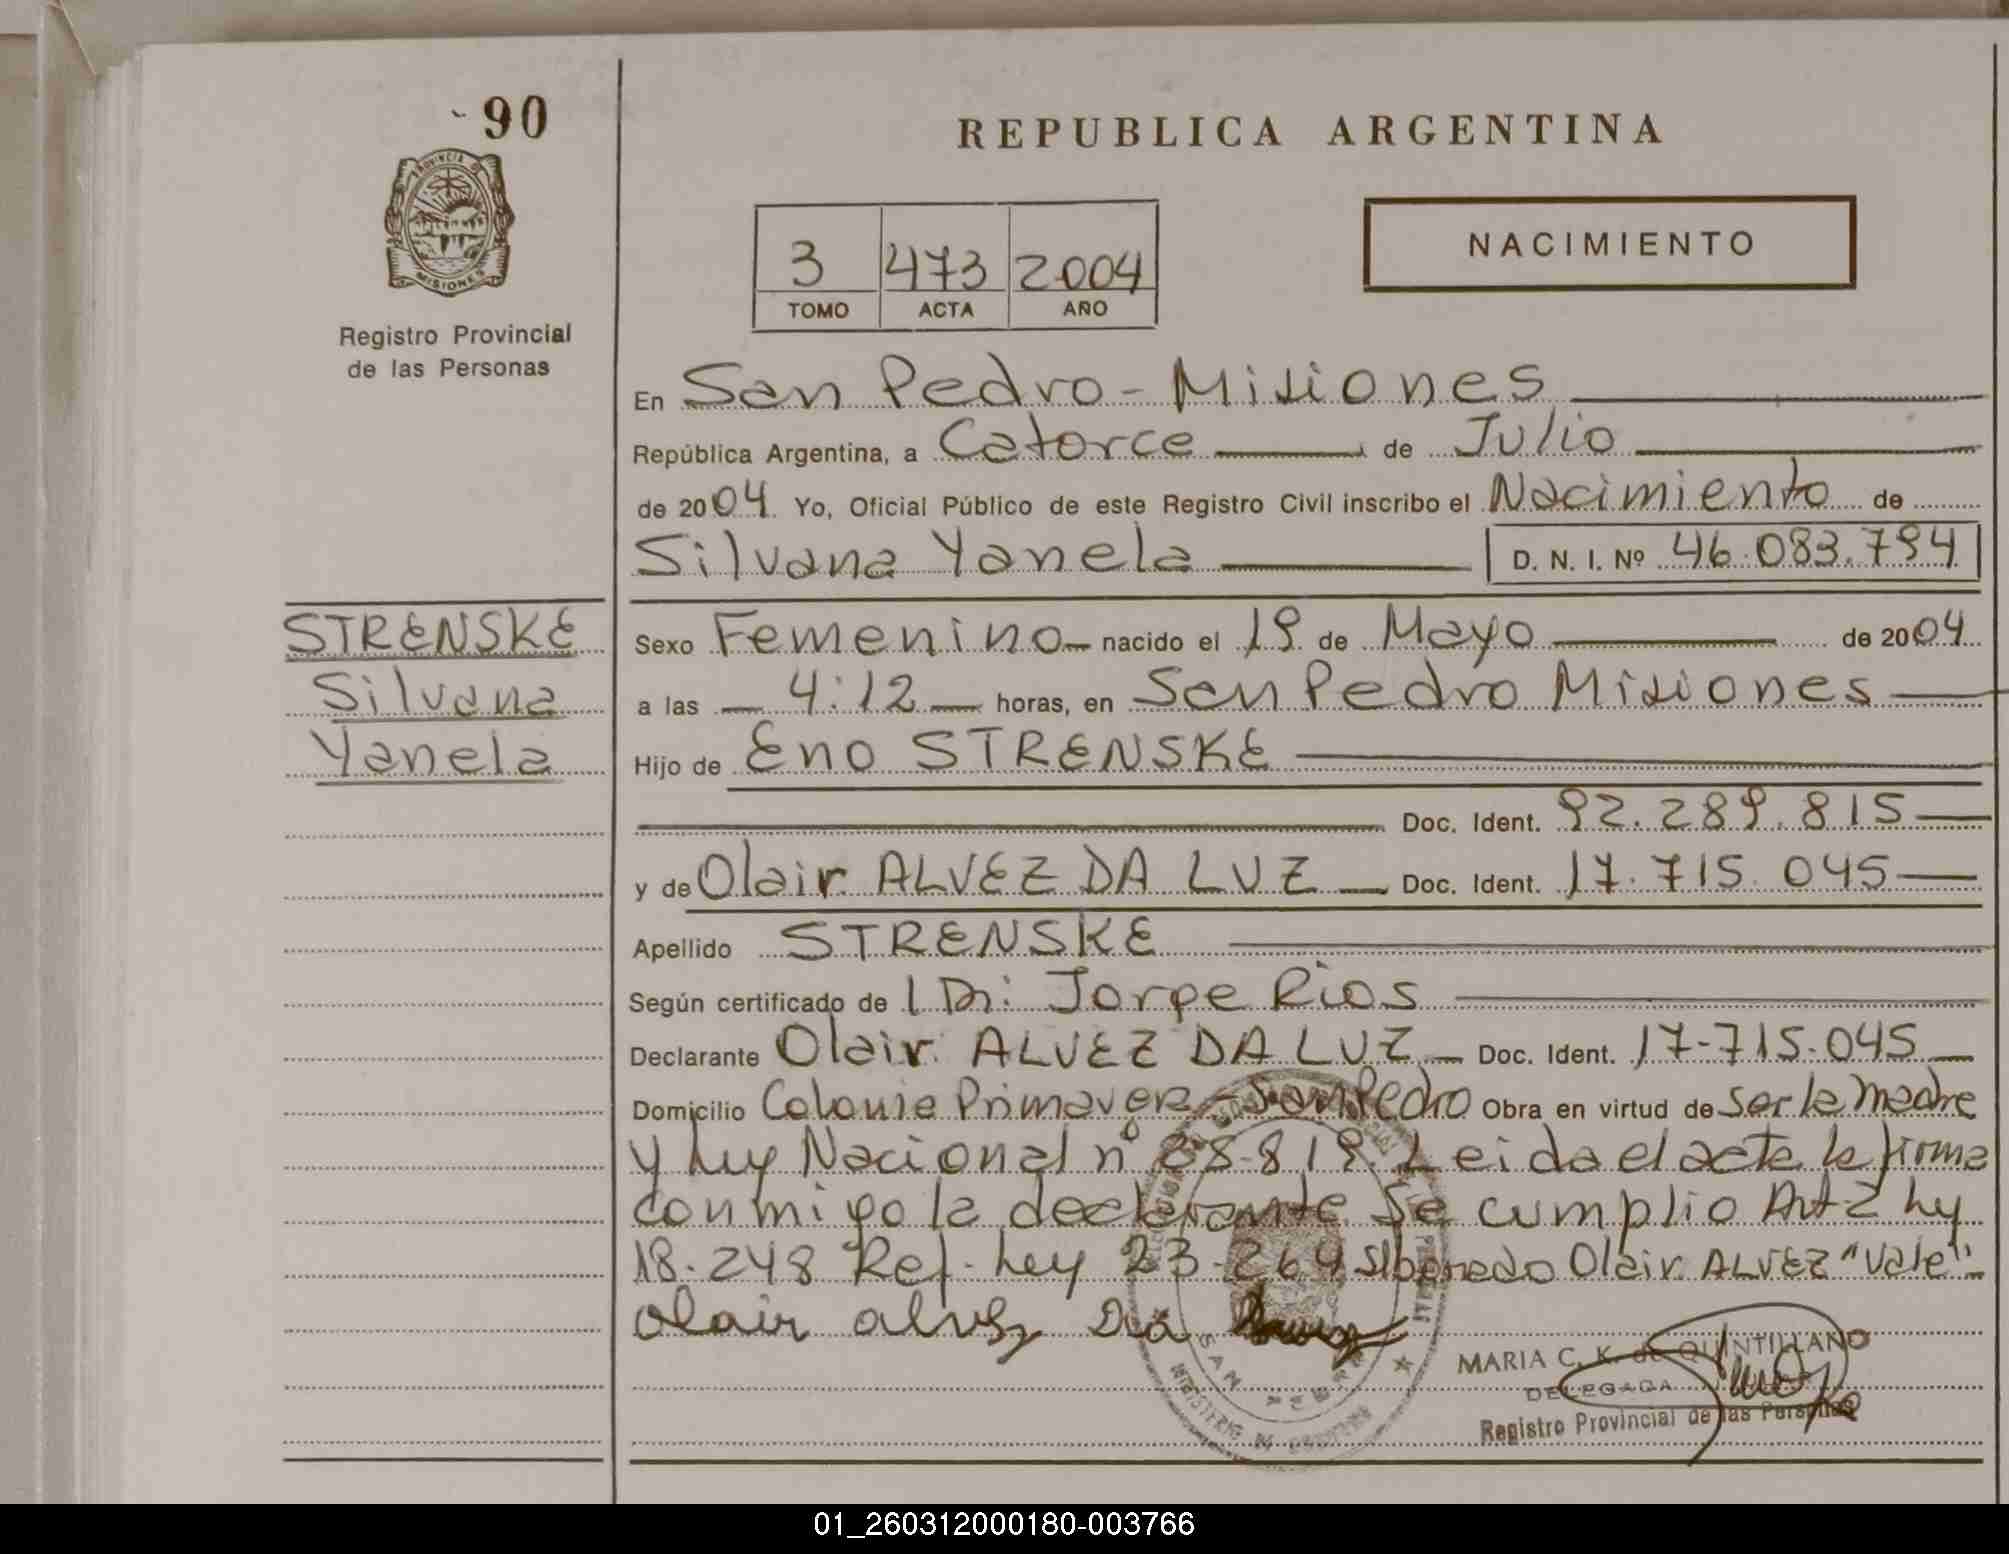 90
PROVINCIA DE
MISIONES
Registro Provincial
de las Personas
REPUBLICA ARGENTINA
3 473 2004
TOMO ACTA AÑO
NACIMIENTO
En San Pedro - Misiones
República Argentina, a Catorce de Julio
de 2004 Yo, Oficial Público de este Registro Civil inscribo el Nacimiento de
Silvana Yanela D. N. I. Nº 46.083.794
STRENSKE
Silvana
Yanela
Sexo Femenino nacido el 19 de Mayo de 2004
a las 4:12 horas, en San Pedro Misiones
Hijo de Eno STRENSKE
Doc. Ident. 92.289.815
y de Olair ALVEZ DA LUZ Doc. Ident. 17.715.045
Apellido STRENSKE
Según certificado de l Dr: Jorge Rios
Declarante Olair ALVEZ DA LUZ Doc. Ident. 17-715-045
Domicilio Colonia Primavera - San Pedro Obra en virtud de ser la madre
y Ley Nacional nº Leida el acta la firma
conmigo la declarante Se cumplio Art 2 Ley
18.248 Ref. Ley 23.264 S/borrado Olair ALVEZ "Vale"
Olair alvez Da
SAN PEDRO
MARIA C. K. de QUINTILLANO
DELEGADA
Registro Provincial de las Personas
01_260312000180-003766